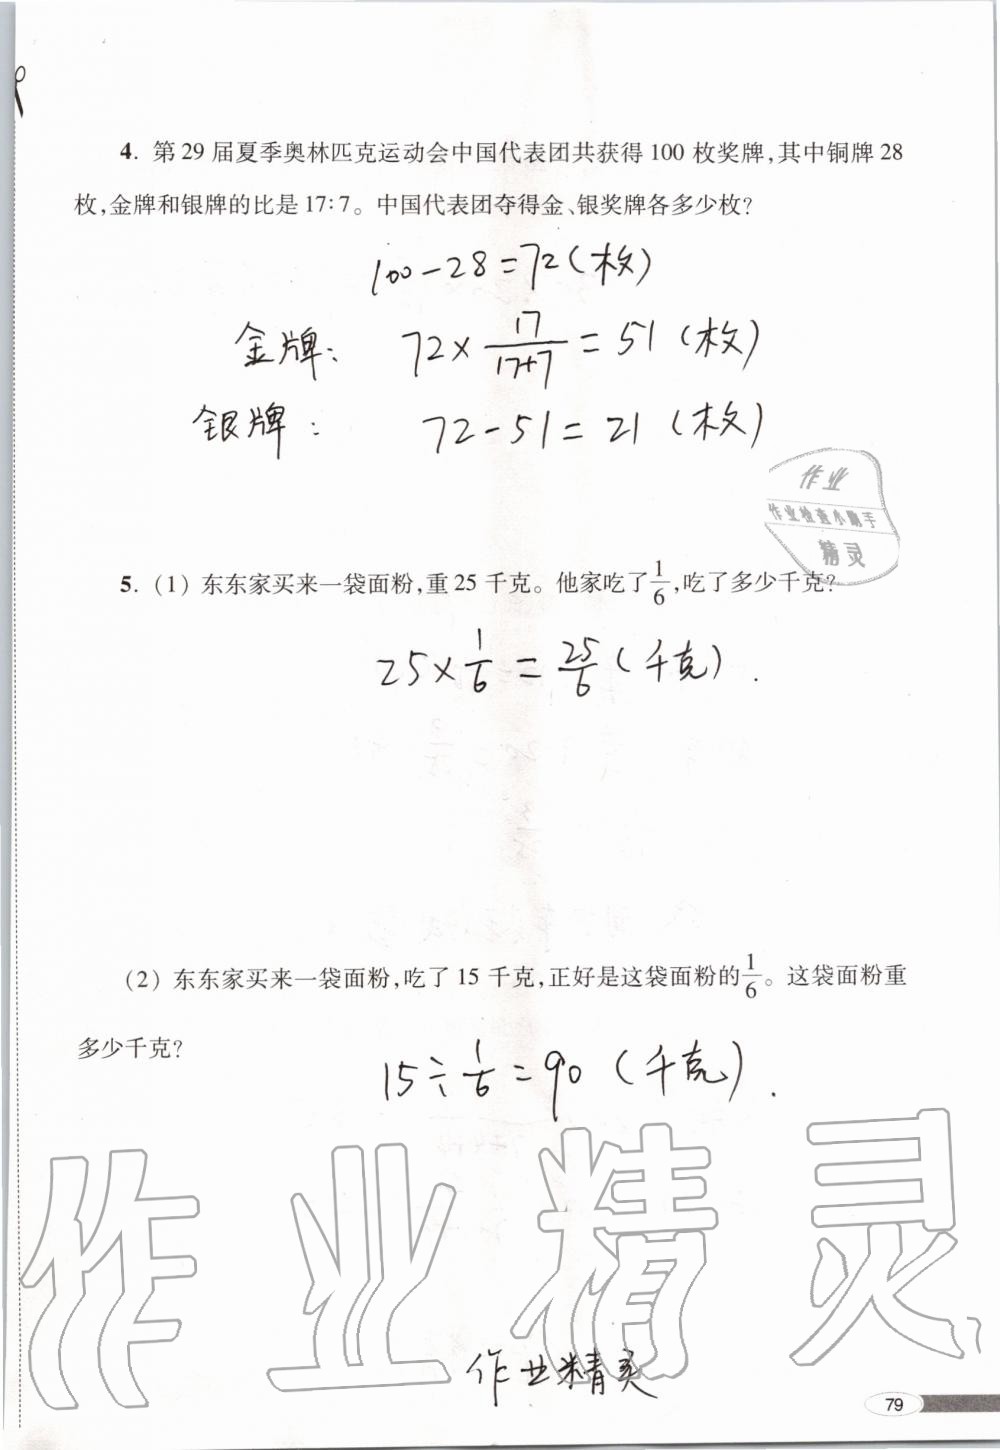 4. 第29届夏季奥林匹克运动会中国代表团共获得100枚奖牌,其中铜牌28
枚,金牌和银牌的比是17:7。中国代表团夺得金、银奖牌各多少枚?
100-28=72(枚)
金牌: 72×17/(17+7)=51(枚)
银牌: 72-51=21(枚)
作业
作业检查小助手
精灵
5. (1) 东东家买来一袋面粉,重25千克。他家吃了1/6,吃了多少千克?
25×1/6=25/6(千克).
(2) 东东家买来一袋面粉,吃了15千克,正好是这袋面粉的1/6。这袋面粉重
多少千克?
15÷1/6=90(千克).
作业精灵
作业精灵
79